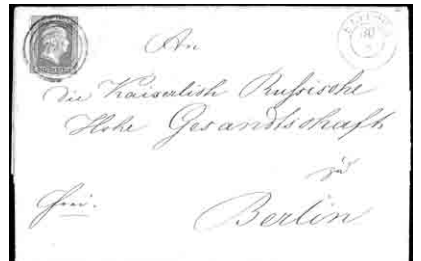 An
die Kaiserlich Russische
Hohe Gesandtschaft
zu
Berlin
frei.